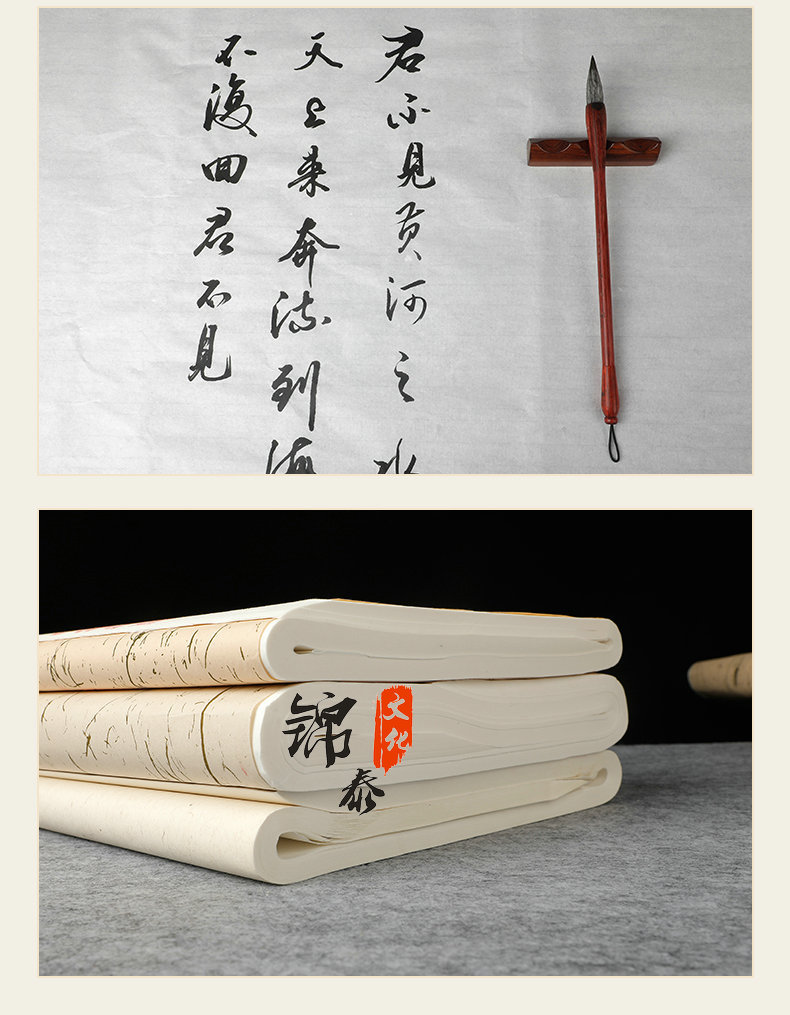 君不見黄河之水
天上来奔流到海
不復回君不見
锦泰
文化